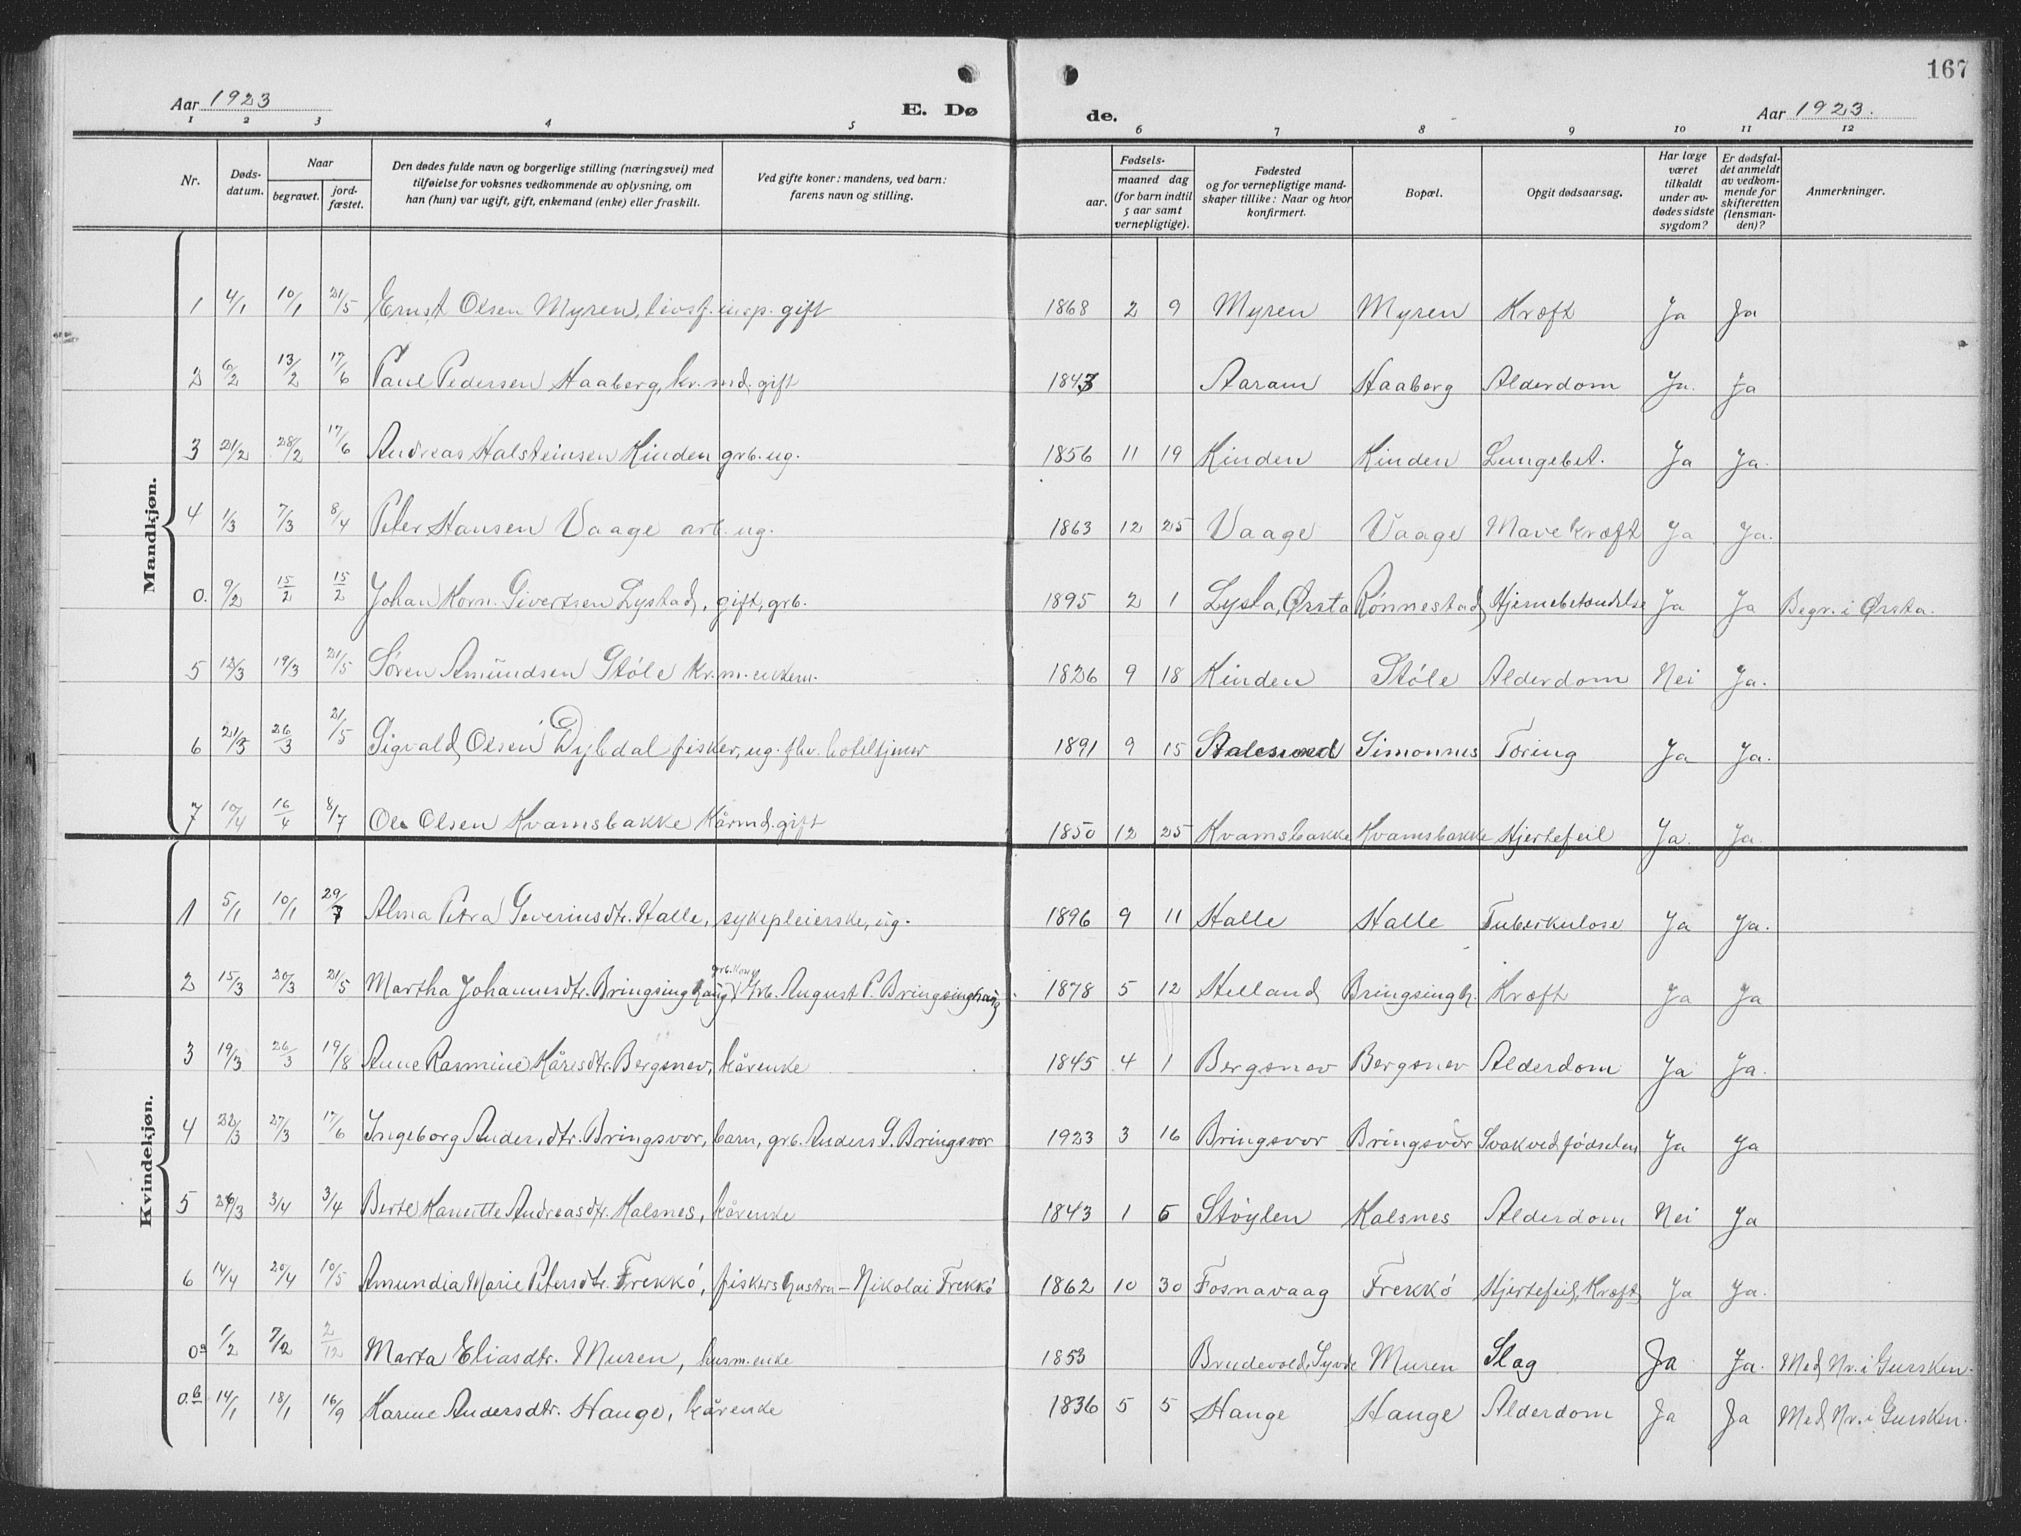 167
Aar 1923
E. Dø
de.
Aar 1923.
1 2 3 4 5 6 7 8 9 10 11 12
Nr.
Døds-
datum.
Naar
begravet.
jord-
fæstet.
Den dødes fulde navn og borgerlige stilling (næringsvei) med
tilføielse for voksnes vedkommende av oplysning, om
han (hun) var ugift, gift, enkemand (enke) eller fraskilt.
Ved gifte koner: mandens, ved barn:
farens navn og stilling.
Fødsels-
aar.
maaned dag
(for barn indtil
5 aar samt
vernepligtige).
Fødested
og for vernepligtige mand-
skaper tillike: Naar og hvor
konfirmert.
Bopæl.
Opgit dødsaarsag.
Har læge
været
tilkaldt
under av-
dødes sidste
sygdom?
Er dødsfal-
det anmeldt
av vedkom-
mende for
skifteretten
(lensman-
den)?
Anmerkninger.
Mandkjøn.
1 4/1 10/1 21/5 Ernst Olsen Myren, livsf. insp. gift 1868 2 9 Myren Myren Kræft Ja Ja
2 6/2 13/2 17/6 Paul Pedersen Haaberg, kr.md. gift 1843 Aaram Haaberg Alderdom Ja. Ja
3 21/2 28/2 17/6 Andreas Halsteinsen Kinden grb. ug. 1856 11 19 Kinden Kinden Lungebet. Ja Ja.
4 1/3 7/3 8/4 Peter Hansen Vaage arb. ug. 1863 12 25 Vaage Vaage Mavekræft Ja Ja.
0. 9/2 15/2 15/2 Johan Korn. Sivertsen Lystad, gift, grb. 1895 2 1 Lysta, Ørsta Rønnestad Hjernebetændelse Ja Ja Begr. i Ørsta.
5 12/3 19/3 21/5 Søren Amundsen Støle kr.m. enkem. 1826 9 18 Kinden Støle Alderdom Nei Ja.
6 21/3 26/3 21/5 Sigvald Olsen Dybdal fisker, ug. fhv. hoteltjener 1891 9 15 Simonnes Tæring Ja Ja.
7 10/4 16/4 8/7 Ole Olsen Kvamsbakke Kårmd. gift 1850 12 25 Kvamsbakke Kvamsbakke Hjertefeil Ja. Ja.
Kvindekjøn.
1 5/1 10/1 29/7 Alma Petra Severinsdtr. Halle, sykepleierske, ug. 1896 9 11 Halle Halle Tuberkulose Ja Ja.
2 15/3 20/3 21/5 Martha Johannesdtr. Bringsinghaug grb. kone Grb. August P. Bringsinghaug. 1878 5 12 Helland Bringsingh. Kræft Ja Ja
3 19/3 26/3 19/8 Anne Rasmine Kåresdtr. Bergsnev, kårenke 1845 4 1 Bergsnev Bergsnev Alderdom Ja Ja.
4 22/3 27/3 17/6 Ingeborg Andersdtr. Bringsvor, barn, grb. Anders S. Bringsvor 1923 3 16 Bringsvor Bringsvor Svak ved fødselen Ja Ja
5 26/3 3/4 3/4 Berte Andreasdtr. Kalsnes, kårenke 1843 1 5 Støylen Kalsnes Alderdom Nei Ja
6 14/4 20/4 10/5 Amundia Marie Petersdtr. Frekkø, fiskers hustru - Nikolai Frekkø 1862 10 30 Fosnavaag Frekkø Hjertefeil, Kræft Ja Ja.
0a 1/2 7/2 2/12 Marta Eliasdtr. Muren, husm. enke 1853 Brudevold, Syvde Muren Slag Ja Ja. Med Nr. i Gursken.
0.b 14/1 18/1 16/9 Karine Andersdtr. Hauge, kårenke 1836 5 5 Hauge Hauge Alderdom Ja Ja Med Nr. i Gursken.